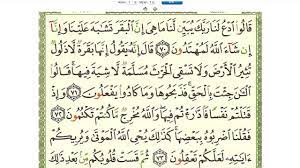 قَالُوا ادْعُ لَنَا رَبَّكَ يُبَيِّن لَّنَا مَا هِيَ إِنَّ الْبَقَرَ تَشَابَهَ عَلَيْنَا وَإِنَّا
إِن شَاءَ اللَّهُ لَمُهْتَدُونَ ﴿٧٠﴾ قَالَ إِنَّهُ يَقُولُ إِنَّهَا بَقَرَةٌ لَّا ذَلُولٌ
تُثِيرُ الْأَرْضَ وَلَا تَسْقِي الْحَرْثَ مُسَلَّمَةٌ لَّا شِيَةَ فِيهَا قَالُوا
الْآنَ جِئْتَ بِالْحَقِّ فَذَبَحُوهَا وَمَا كَادُوا يَفْعَلُونَ ﴿٧١﴾ وَإِذْ
قَتَلْتُمْ نَفْسًا فَادَّارَأْتُمْ فِيهَا وَاللَّهُ مُخْرِجٌ مَّا كُنتُمْ تَكْتُمُونَ ﴿٧٢﴾
فَقُلْنَا اضْرِبُوهُ بِبَعْضِهَا كَذَٰلِكَ يُحْيِي اللَّهُ الْمَوْتَىٰ وَيُرِيكُمْ
آيَاتِهِ لَعَلَّكُمْ تَعْقِلُونَ ﴿٧٣﴾ ثُمَّ قَسَتْ قُلُوبُكُم مِّن بَعْدِ ذَٰلِكَ